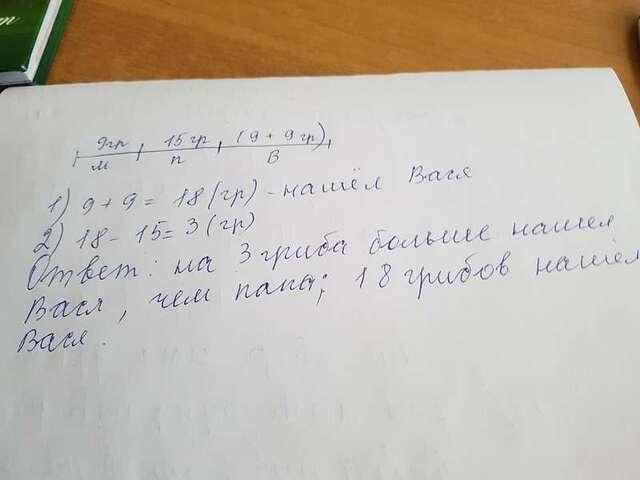 9гр 15гр (9+9гр)
м п В
1) 9+9= 18(гр) - нашёл Вася
2) 18-15=3(гр)
Ответ: на 3 гриба больше нашел
Вася, чем папа; 18 грибов нашёл
Вася.